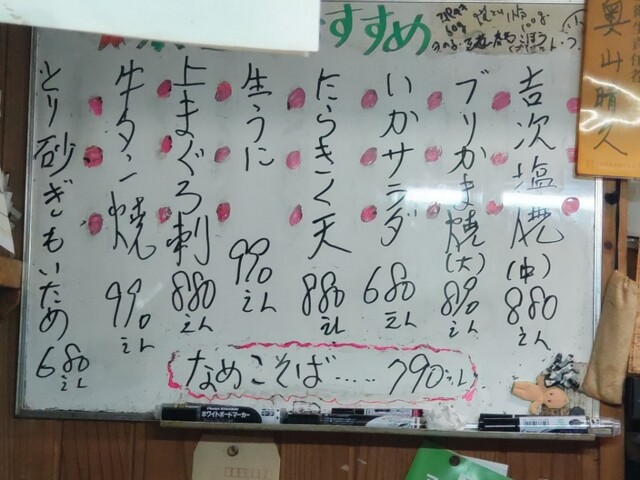 すすめ
吉次塩焼(中)880えん
ブリかま焼(大)890えん
いかサラダ680えん
たらきく天880えん
生うに990えん
上まぐろ刺880えん
牛タン焼990えん
とり砂ぎもいため680えん
なめこそば.....790えん
奥山晴久
ホワイトボードマーカー